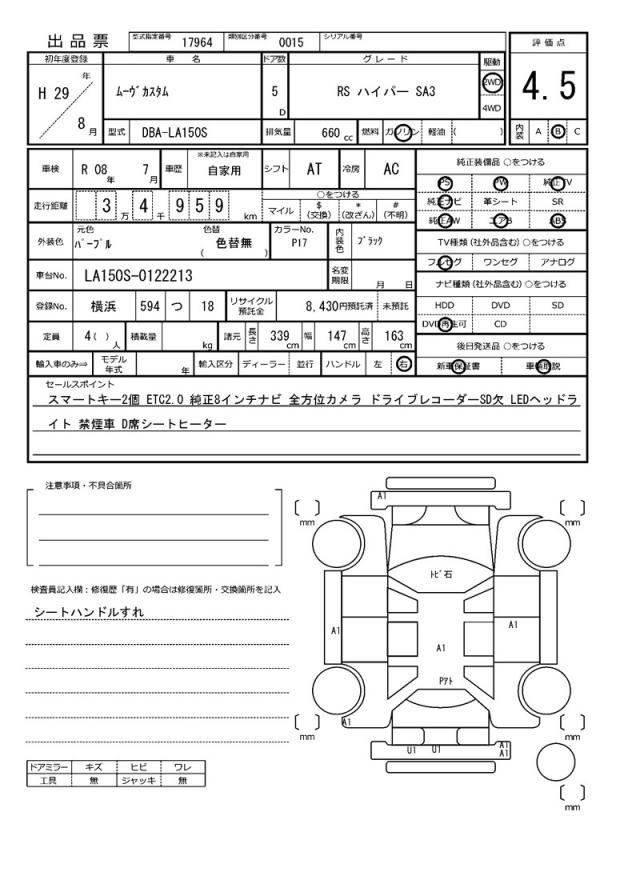 出品票 型式指定番号 17964 類別区分番号 0015 シリアル番号
評価点
4.5
内装 A B C
初年度登録 車名 ドア数 グレード 駆動
H 29 年 8 月
ムーヴカスタム 5 D RS ハイパー SA3 2WD 4WD
型式 DBA-LA150S 排気量 660 cc 燃料 ガソリン 軽油 ( )
車検 R 08 年 7 月 車歴 ※未記入は自家用 自家用 シフト AT 冷房 AC
走行距離 3 万 4 千 9 5 9 km
○をつける
マイル $ (交換) * (改ざん) # (不明)
外装色 元色 パープル 色替 ( 色替無 ) カラーNo. P17 内装色 ブラック
車台No. LA150S-0122213 名変期限 月 日
登録No. 横浜 594 つ 18 リサイクル預託金 8,430円預託済 未預託
定員 4( ) 人 積載量 kg 諸元 長さ 339 cm 幅 147 cm 高さ 163 cm
輸入車のみ⇒ モデル年式 年 輸入区分 ディーラー 並行 ハンドル 左 右
純正装備品 ○をつける
PS PW 純正TV
純正ナビ 革シート SR
純正AW エアB ABS
TV種類 (社外品含む) ○をつける
フルセグ ワンセグ アナログ
ナビ種類 (社外品含む) ○をつける
HDD DVD SD
DVD再生可 CD
後日発送品 ○をつける
新車保証書 車輌取説
セールスポイント
スマートキー2個 ETC2.0 純正8インチナビ 全方位カメラ ドライブレコーダーSD欠 LEDヘッドラ
イト 禁煙車 D席シートヒーター
注意事項・不具合箇所
検査員記入欄：修復歴「有」の場合は修復箇所・交換箇所を記入
シートハンドルすれ
ドアミラー キズ ヒビ ワレ
工具 無 ジャッキ 無
A1
mm mm
トビ石
A1 A1
A1
Pアト
A1
mm mm
U1 U1 A1
A1
mm